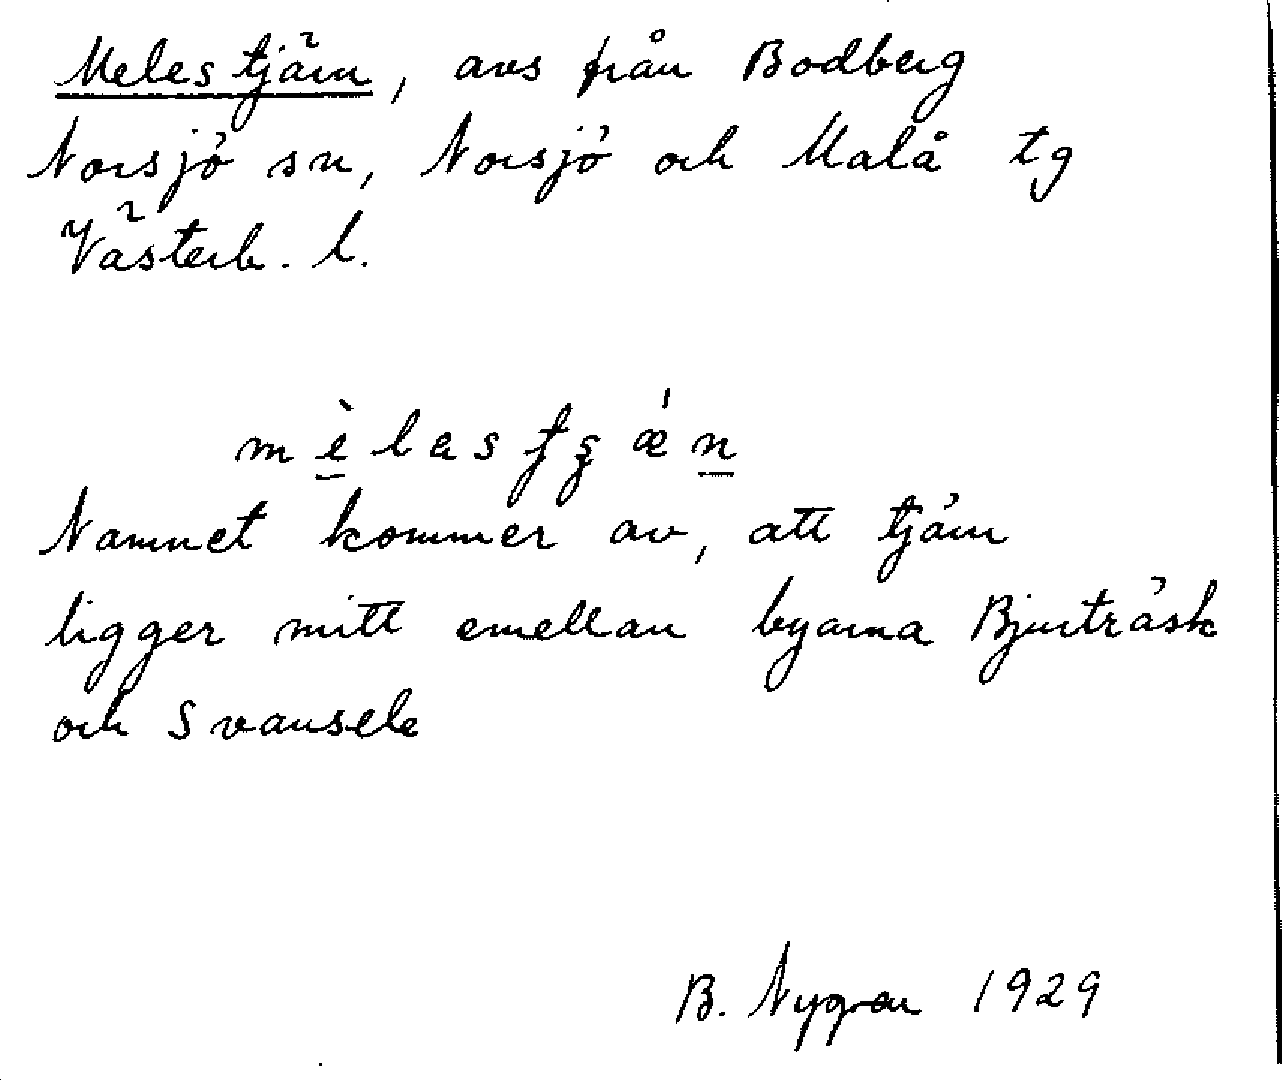 Melestjärn, avs från Bodberg
Norsjö sn, Norsjö och Malå tg
Västerb. l.
Namnet kommer av, att tjärn
ligger mitt emellan byarna Bjurträsk
och Svansele
B. Nygren 1929